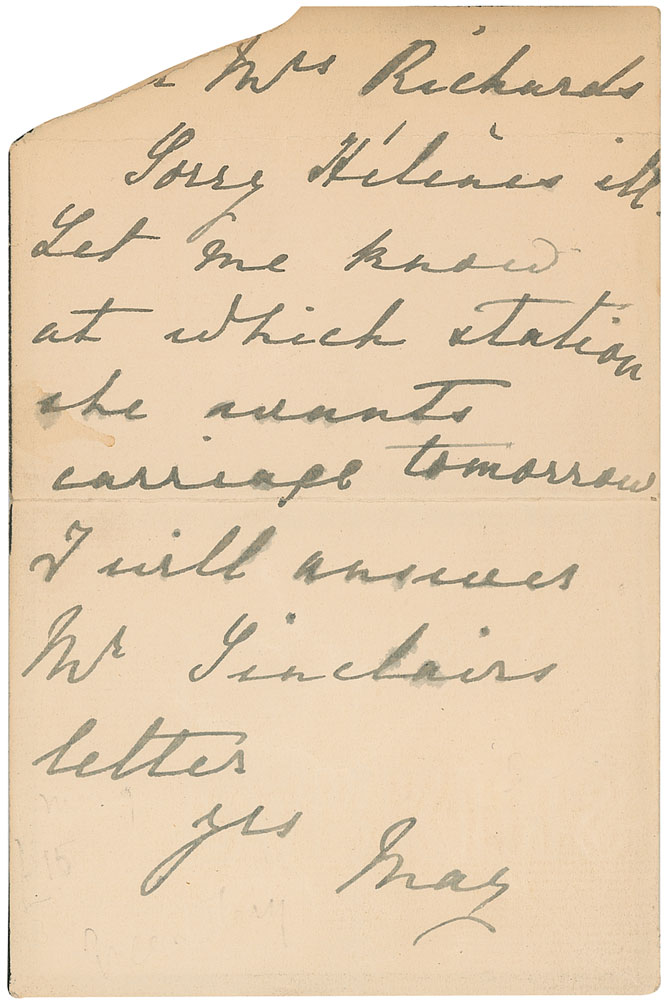 Mrs Richards
Sorry Hélènes ill.
Let me know
at which station
she wants
carriage tomorrow.
I will answer
Mr Sinclairs
letter
yrs
May